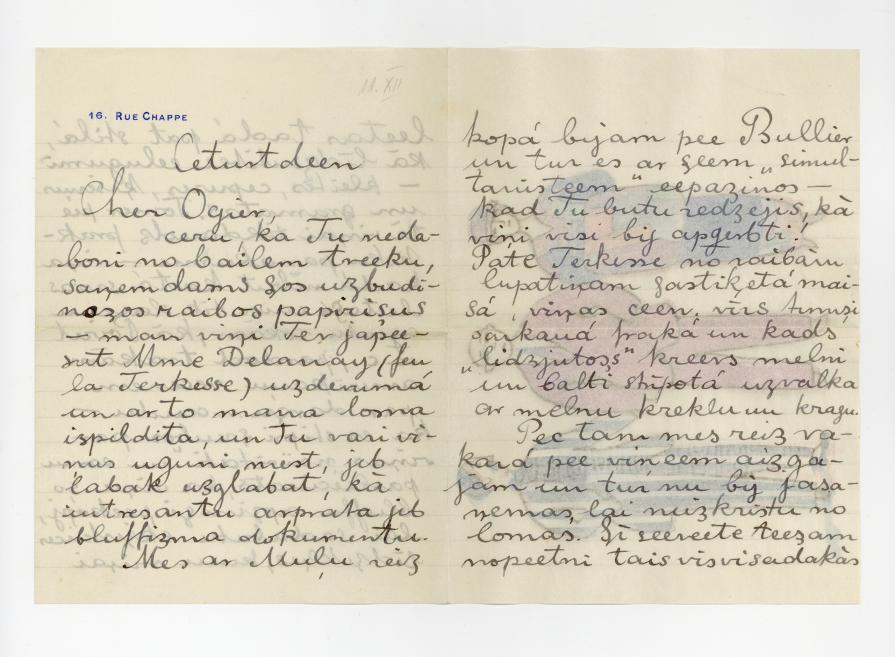 11. XII
16. RUE CHAPPE
Ceturtdeen
Cher Ogier,
ceru, ka Tu neda-
boni no bailem treeku,
saņemdams šos uzbudi-
nošos raibos papirišus
— man viņi Tev japee-
sut Mme Delaunay (feu
la Terkesse) uzdevumá
un ar to mana loma
ispildita, un Tu vari vi-
nus uguni mest, jeb
labak uzglabat, ká
intresantu arprata jeb
bluffizma dokumentu.
Mes ar Muļu reiz
kopá bijam pee Bullier
un tur es ar šeem „simul-
tanisteem" eepazinos —
kad Tu butu redzejis, kà
viņi visi bij apģerbti!
Pate Terkesse no raibàm
lupatiņam sastiķetá mai-
sá, viņas ceen. virs
sarkaná frakà un kads
„lidzjutošs" kreevs melni
un balti stripotá uzvalka
ar melnu kreklu un kragu.
Pec tam mes reiz va-
kará pee viņeem aizga-
jam un tur nu bij jasa-
ņemas, lai neizkristu no
lomas. Ši seeveete teešam
nopeetni tais visvisadakàs